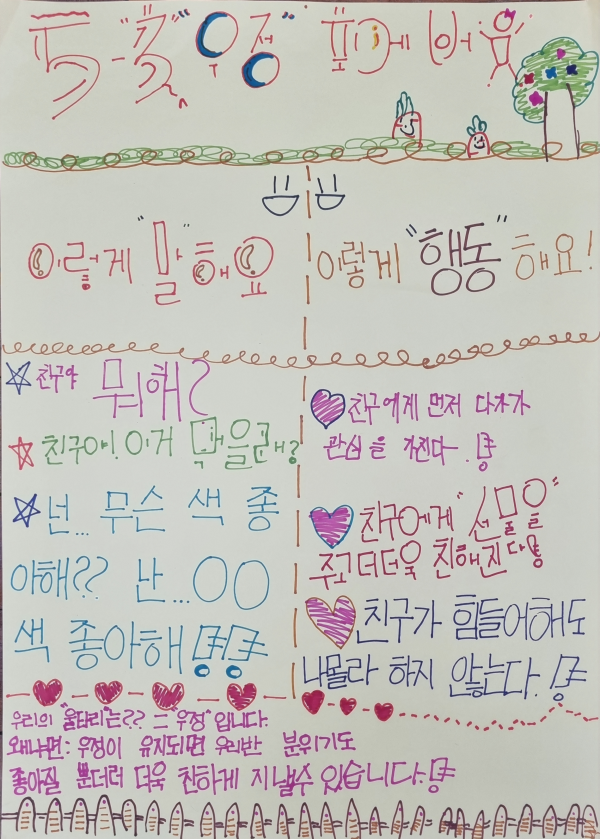 5-3 "우정"
이렇게 "말" 해요
친구야 뭐해?
친구야! 이거 먹을래?
넌... 무슨 색 좋
아해?? 난...○○
색 좋아해!!
이렇게 "행동" 해요!
친구에게 먼저 다가가
관심을 가진다.!
친구에게 "선물을
주고 더더욱 친해진다!
친구가 힘들어해도
나몰라 하지 않는다.!
우리의 "울타리"는?? 그 "우정"입니다.
왜냐면: 우정이 유지되면 우리반 분위기도
좋아질 뿐더러 더욱 친하게 지낼수 있습니다.!